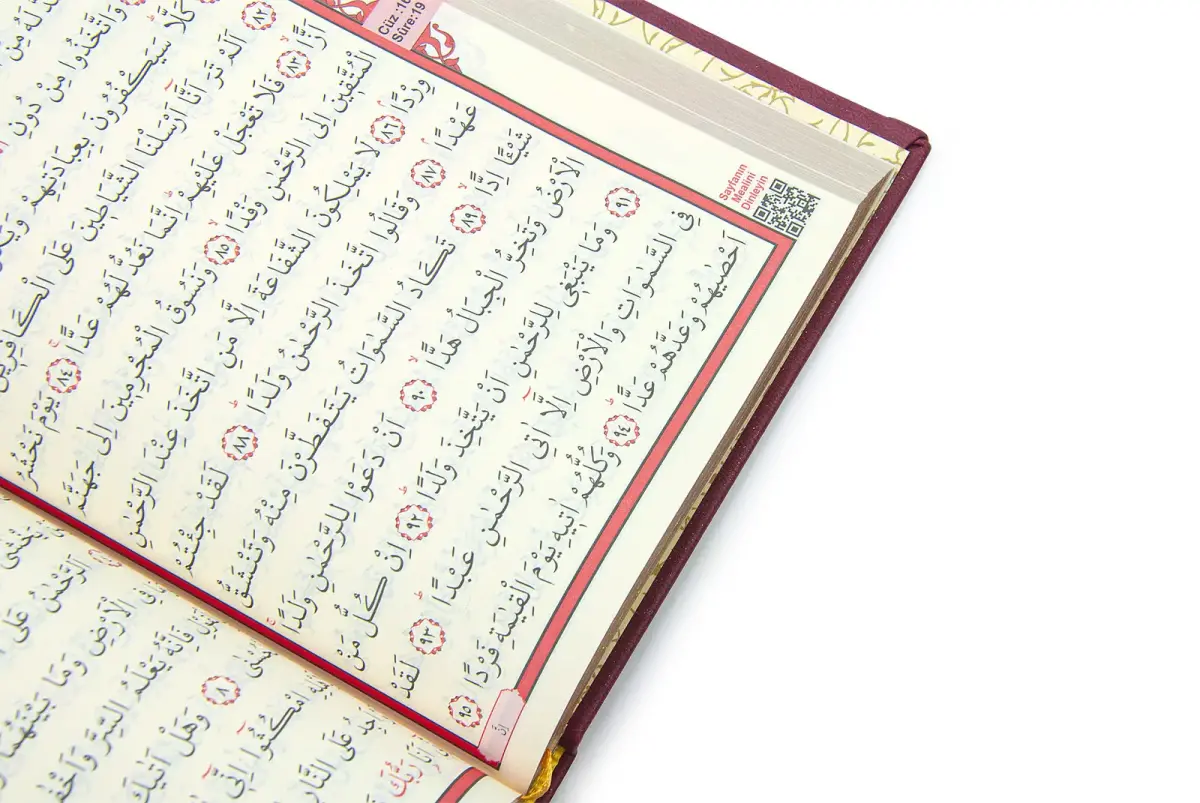 Cüz :16
Sûre:19
Sayfanın
Mealini
Dinleyin
وَاتَّخَذُوا مِنْ دُونِ
كَلَّا سَيَكْفُرُونَ بِعِبَادَتِهِمْ
٨٢ اَلَمْ تَرَ اَنَّا اَرْسَلْنَا الشَّيَاطِينَ عَلَى الْكَافِرِينَ
اَزًّا ٨٣ فَلَا تَعْجَلْ عَلَيْهِمْ اِنَّمَا نَعُدُّ لَهُمْ عَدًّا ٨٤ يَوْمَ نَحْشُرُ
الْمُتَّقِينَ اِلَى الرَّحْمٰنِ وَفْدًا ٨٥ وَنَسُوقُ الْمُجْرِمِينَ اِلٰى جَهَنَّمَ
وِرْدًا ٨٦ لَا يَمْلِكُونَ الشَّفَاعَةَ اِلَّا مَنِ اتَّخَذَ عِنْدَ الرَّحْمٰنِ
عَهْدًا ٨٧ وَقَالُوا اتَّخَذَ الرَّحْمٰنُ وَلَدًا ٨٨ لَقَدْ جِئْتُمْ
شَيْـًٔا اِدًّا ٨٩ تَكَادُ السَّمٰوَاتُ يَتَفَطَّرْنَ مِنْهُ وَتَنْشَقُّ
الْاَرْضُ وَتَخِرُّ الْجِبَالُ هَدًّا ٩٠ اَنْ دَعَوْا لِلرَّحْمٰنِ وَلَدًا
٩١ وَمَا يَنْبَغِى لِلرَّحْمٰنِ اَنْ يَتَّخِذَ وَلَدًا ٩٢ اِنْ كُلُّ مَنْ
فِى السَّمٰوَاتِ وَالْاَرْضِ اِلَّٓا اٰتِى الرَّحْمٰنِ عَبْدًا ٩٣ لَقَدْ
اَحْصٰيهُمْ وَعَدَّهُمْ عَدًّا ٩٤ وَكُلُّهُمْ اٰتِيهِ يَوْمَ الْقِيٰمَةِ فَرْدًا ٩٥
الرَّحْمٰنُ عَلَى
الْاَرْضِ وَمَا بَيْنَهُمَا
فَاِنَّهُ يَعْلَمُ السِّرَّ وَاَخْفٰى
٨ وَهَلْ اَتٰيكَ
امْكُثُوا اِنِّى
عَلَى النَّارِ
رَبُّكَ